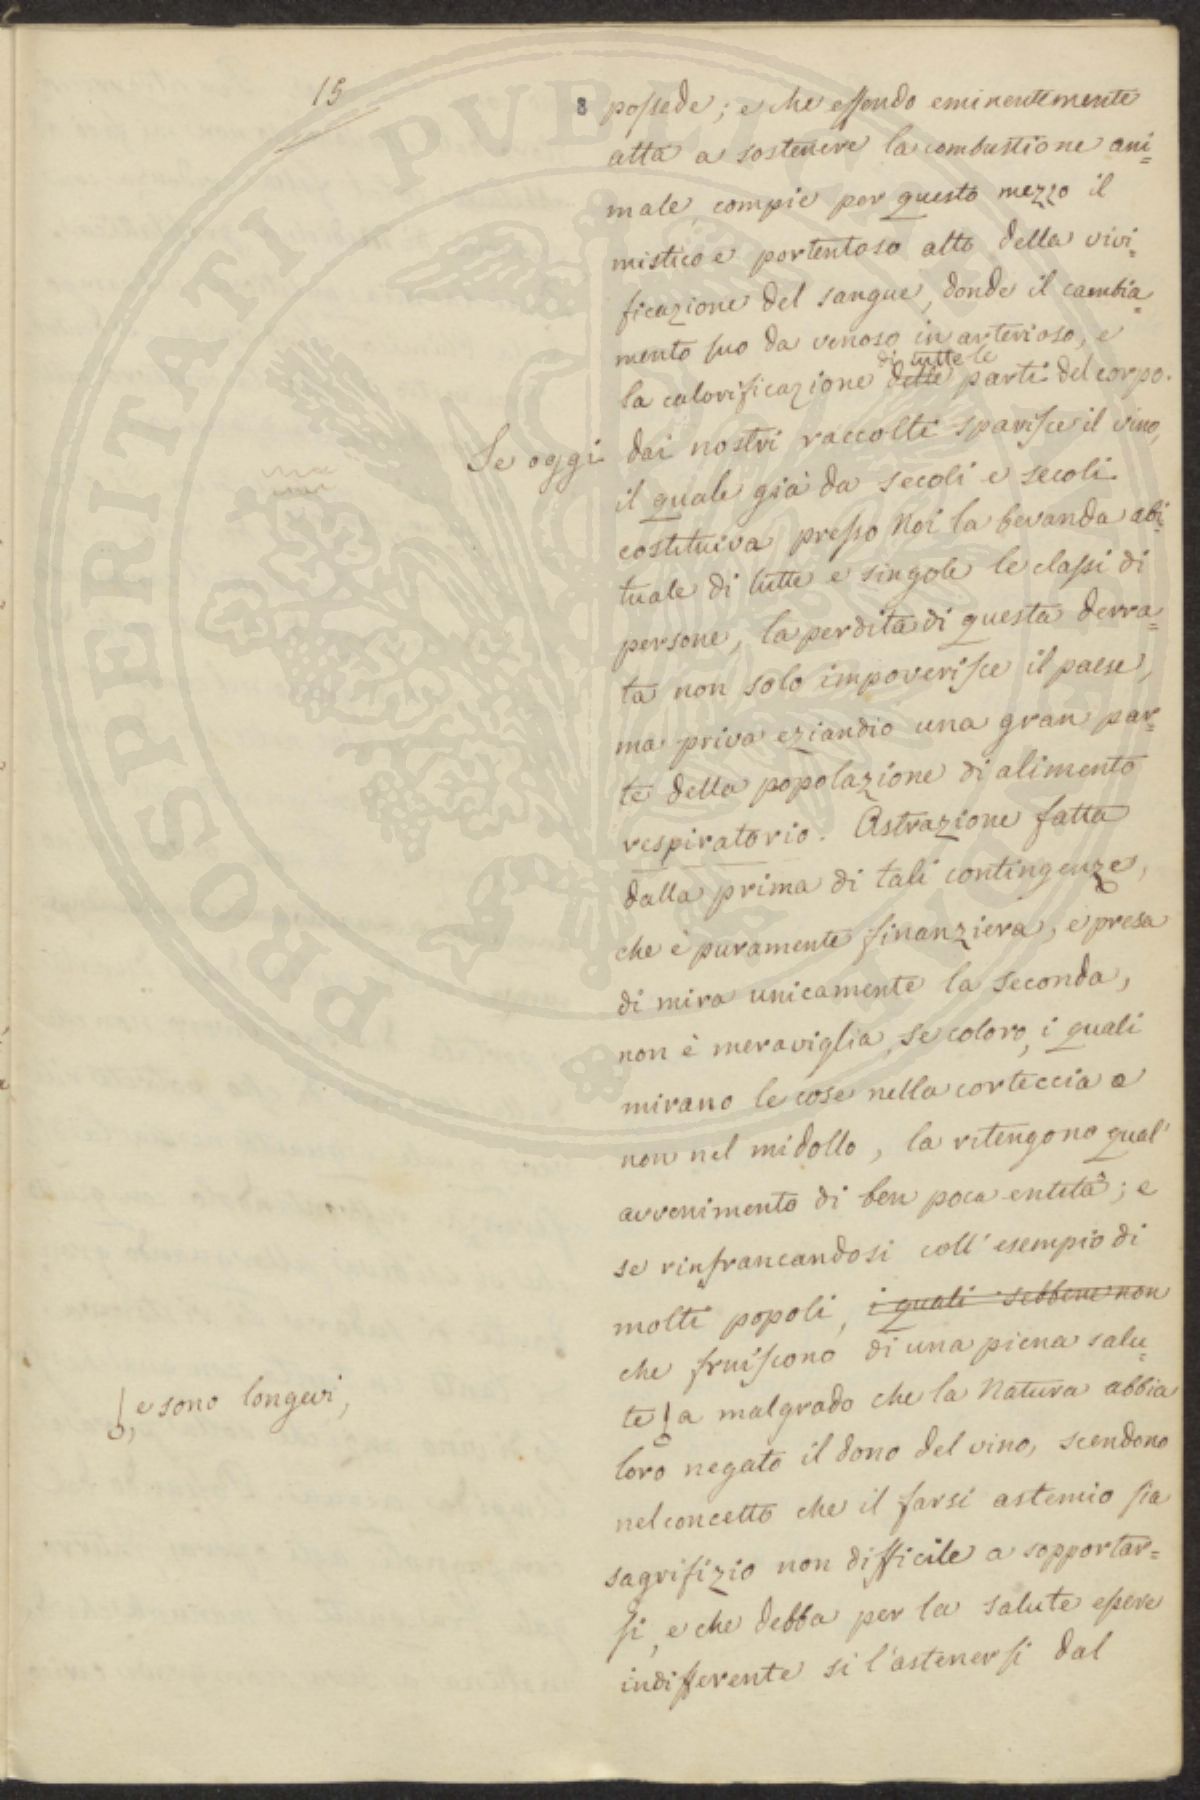 15
8 possede; e che essendo eminentemente
atta a sostenere la combustione ani=
male, compie per questo mezzo il
mistico e portentoso atto della vivi=
ficazione del sangue, donde il cambia=
mento suo da venoso in arterioso, e
di tutte le
la calorificazione delle parti del corpo.
Se oggi dai nostri raccolti sparisce il vino,
il quale già da secoli e secoli
costituiva presso Noi la bevanda abi=
tuale di tutte e singole le classi di
persone, la perdita di questa derra=
ta non solo impoverisce il paese,
ma priva eziandio una gran par=
te della popolazione di alimento
respiratorio. Astrazione fatta
dalla prima di tali contingenze,
che è puramente finanziera, e presa
di mira unicamente la seconda,
non è meraviglia, se coloro, i quali
mirano le cose nella corteccia e
non nel midollo, la ritengono qual'
avvenimento di ben poca entità; e
se rinfrancandosi coll'esempio di
molti popoli, i quali sebbene non
che fruiscono di una piena salu=
te a malgrado che la Natura abbia
, e sono longevi,
loro negato il dono del vino, scendono
nel concetto che il farsi astemio sia
sagrifizio non difficile a sopportar=
si, e che debba per la salute essere
indifferente si l'astenersi dal
PROSPERITATI PVBLICAE